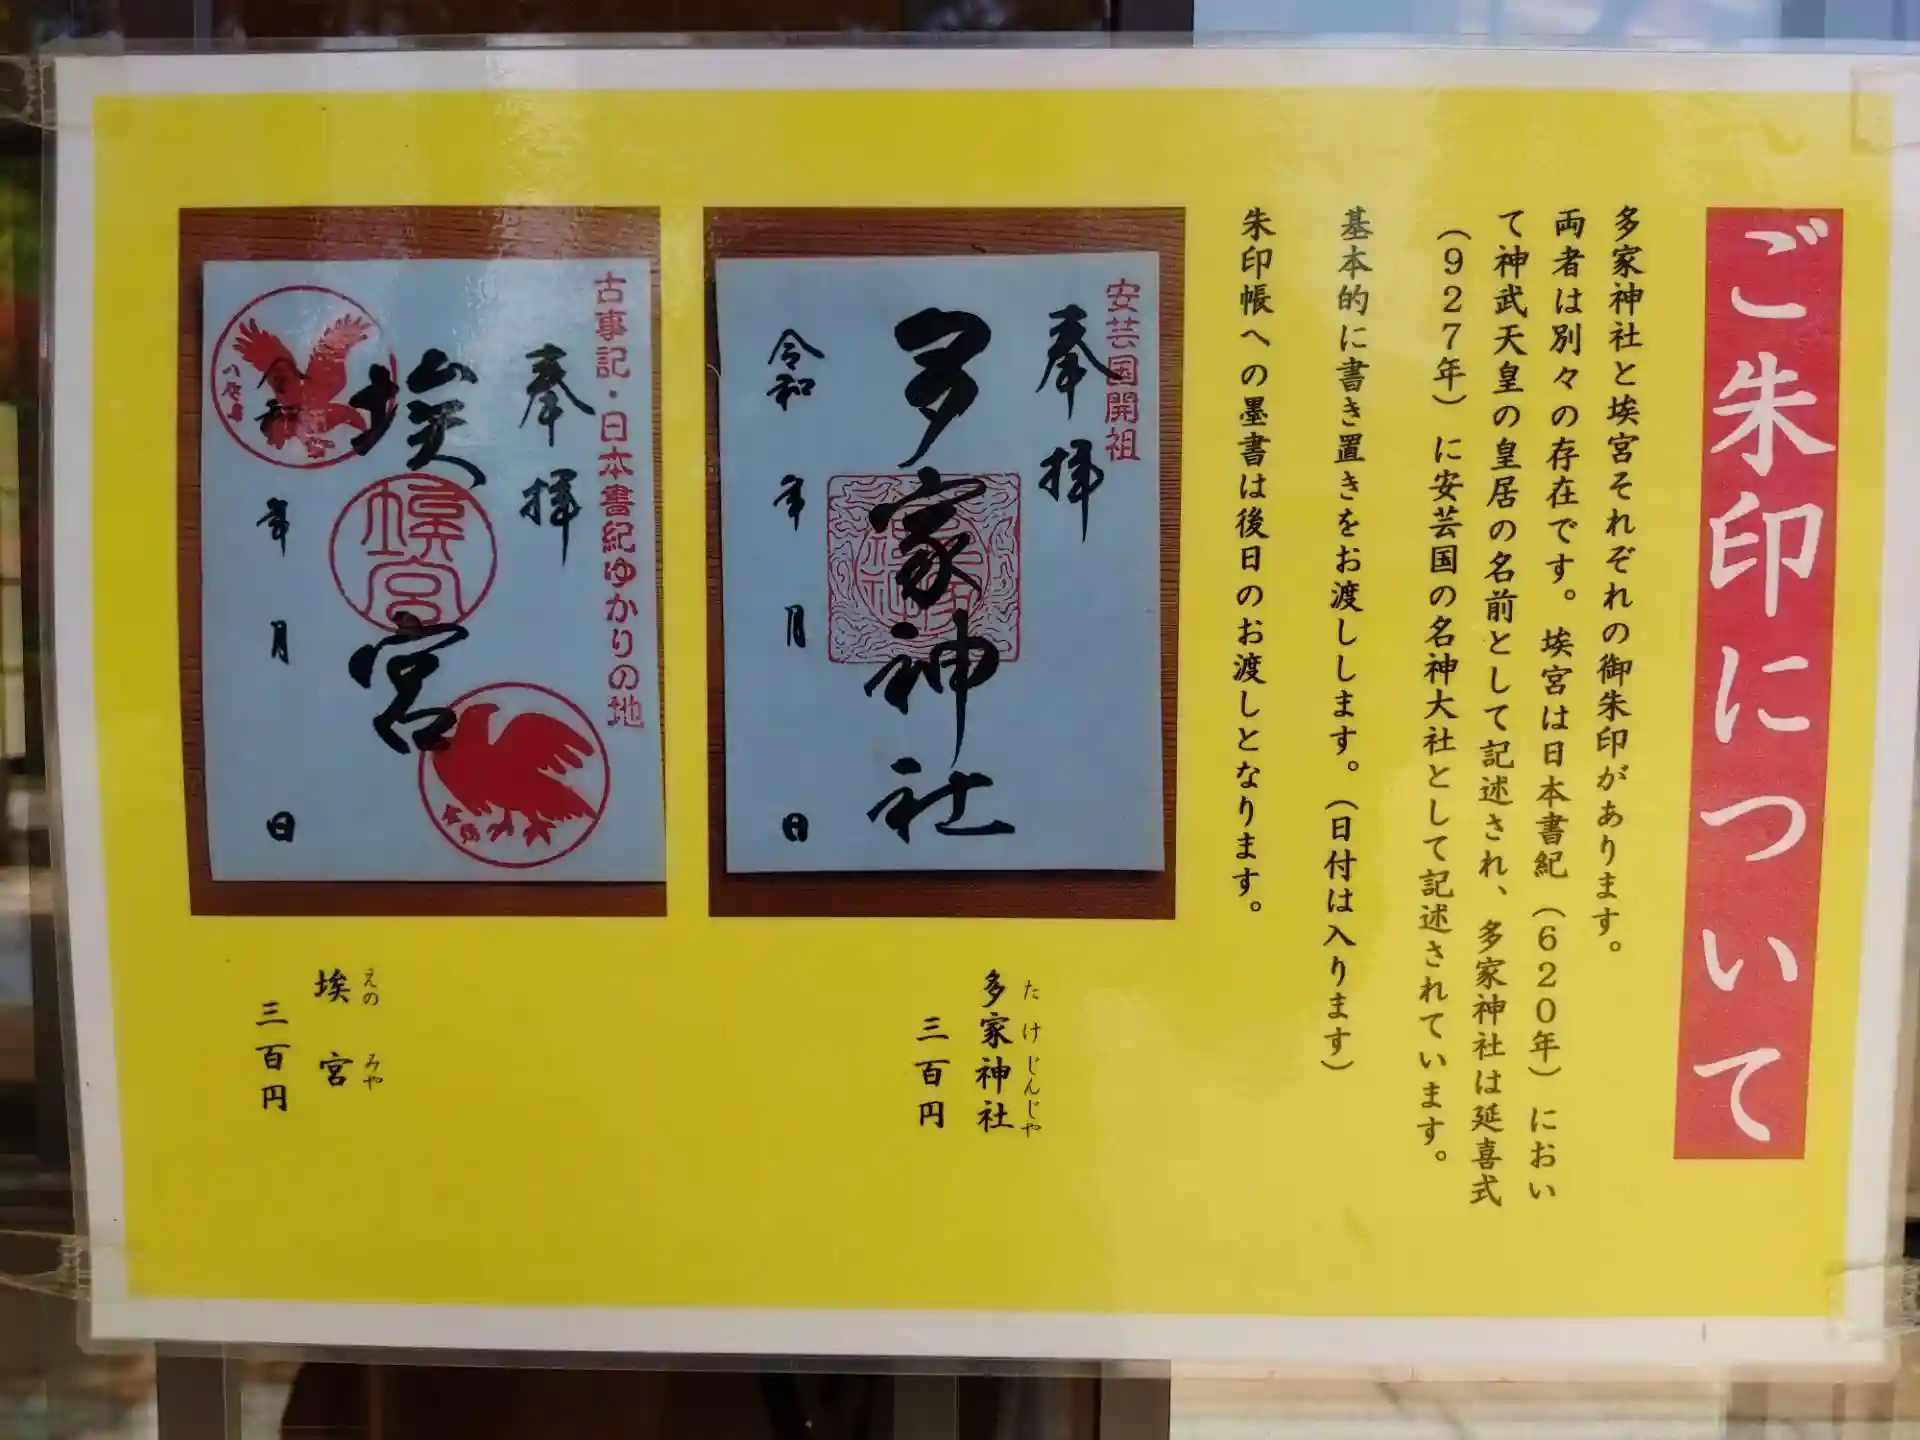 ご朱印について
多家神社と埃宮それぞれの御朱印があります。
両者は別々の存在です。埃宮は日本書紀(620年)におい
て神武天皇の皇居の名前として記述され、多家神社は延喜式
(927年)に安芸国の名神大社として記述されています。
基本的に書き置きをお渡しします。(日付は入ります)
朱印帳への墨書は後日のお渡しとなります。
安芸国開祖
奉拝
多家神社
令和 年 月 日
たけじんじゃ
多家神社
三百円
古事記・日本書紀ゆかりの地
奉拝
埃宮
埃宮
令和 年 月 日
八咫烏
えのみや
埃宮
三百円